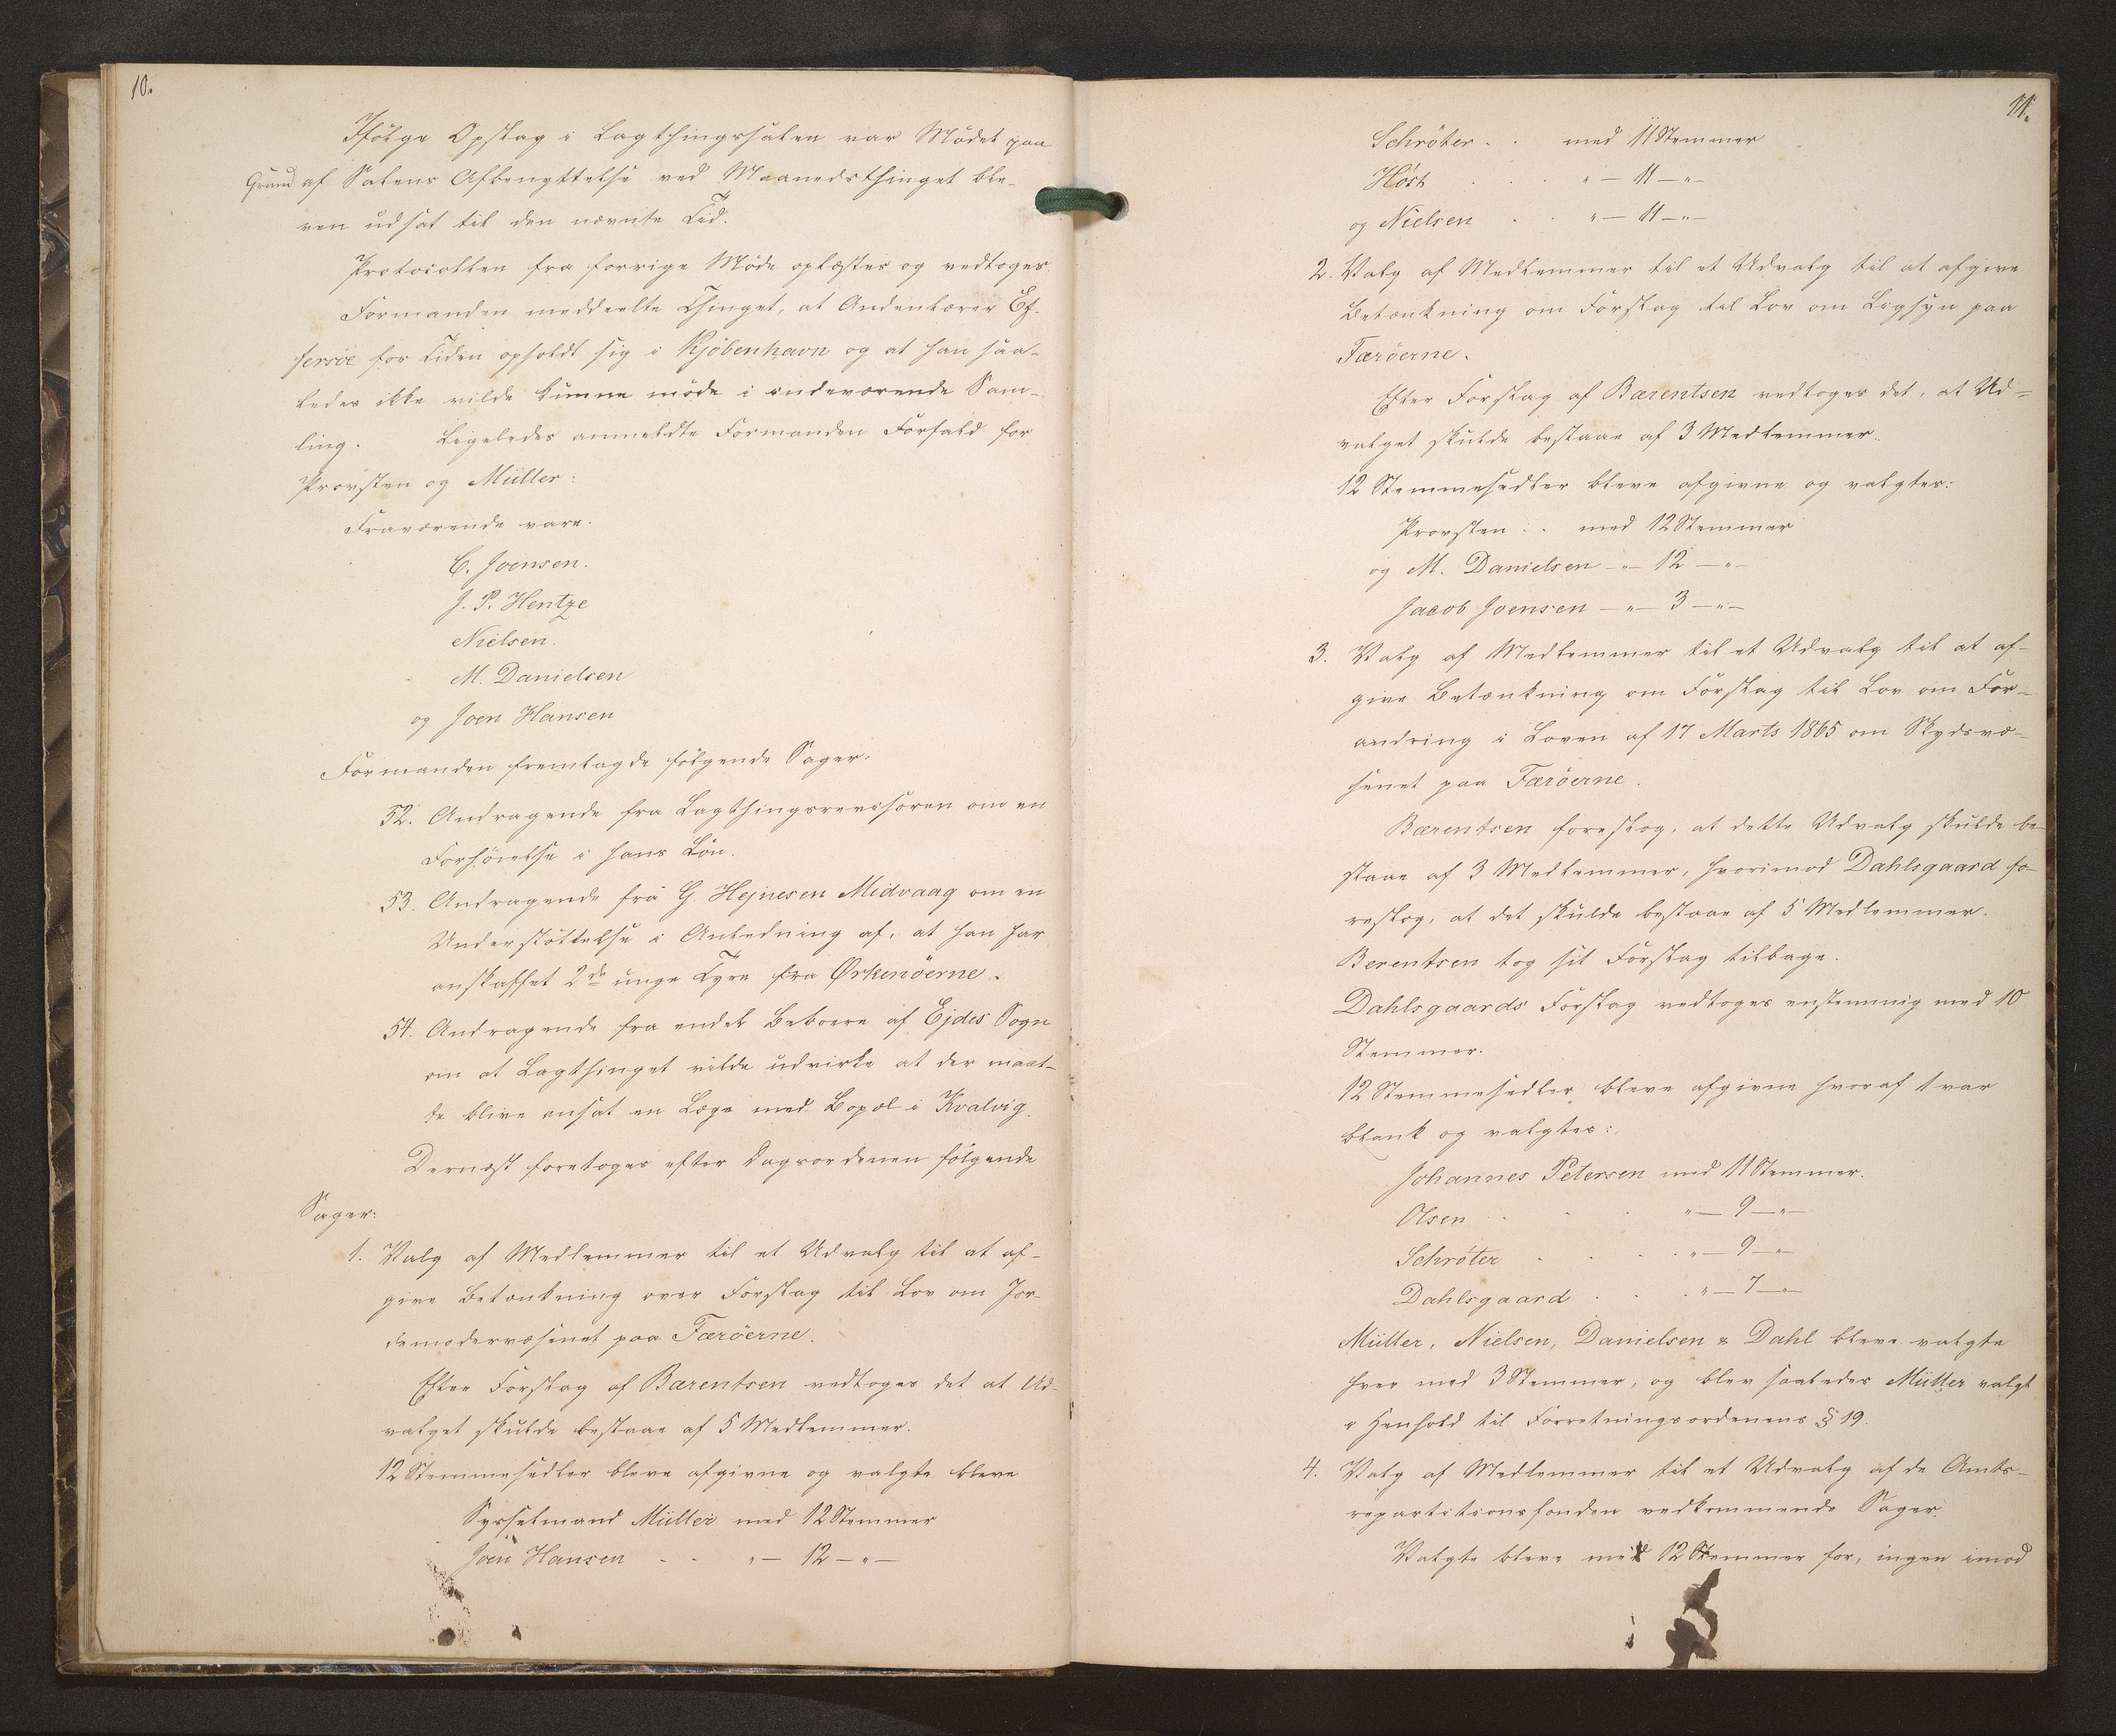 10.
Ifölge Opslag i Lagthingssalen var Mödet paa
Grund af Salens Afbenyttelse ved Maanedsthinget ble-
ven udsat til den nævnte Tid.
Protocollen fra forrige Möde oplæstes og vedtoges
Formanden meddeelte Thinget, at Andenlærer Ef-
fersöe for Tiden opholdt sig i Kjöbenhavn og at han saa-
ledes ikke vilde kunne möde i indeværende Sam-
ling. Ligeledes anmeldte Formanden Forfald for
Provsten og Müller:
Fraværende vare.
C. Joensen.
J. P. Hentze
Nielsen.
M. Danielsen
og Joen Hansen
Formanden fremlagde fölgende Sager.
52. Andragende fra Lagthingsrevisoren om en
Forhöielse i hans Lön.
53. Andragende fra G. Hejnesen Midvaag om en
Understöttelse i Anledning af, at han har
anskaffet 2de unge Tyre fra Ørkenöerne.
54. Andragende fra endel Beboere af Ejdes Sogn
om at Lagthinget vilde udvirke at der maat-
te blive ansat en Læge med Bopæl i Kvalvig.
Dernæst foretoges efter Dagsordenen fölgende
Sager:
1. Valg af Medlemmer til et Udvalg til at af-
give Betænkning over Forslag til Lov om Jor-
demodervæsenet paa Færöerne.
Efter Forslag af Bærentsen vedtoges det at Ud-
valget skulde bestaae af 5 Medlemmer.
12 Stemmesedler bleve afgivne og valgte bleve
Sysselmand Müller med 12 Stemmer
Joen Hansen . . "— 12 —"—
11.
Schröter . . med 11 Stemmer
Höst . . . "— 11 —"—
og Nielsen . . "— 11 —"—
2. Valg af Medlemmer til et Udvalg til at afgive
Betænkning om Forslag til Lov om Ligsyn paa
Færöerne.
Efter Forslag af Bærentsen vedtoges det, at Ud=
valget skulde bestaae af 3 Medlemmer.
12 Stemmesedler bleve afgivne og valgtes:
Provsten . . med 12 Stemmer
og M. Danielsen —"— 12 —"—
Jacob Joensen —"— 3 —"—
3. Valg af Medlemmer til et Udvalg til at af-
give Betænkning om Forslag til Lov om For-
andring i Loven af 17 Marts 1865 om Skydsvæ-
senet paa Færöerne.
Bærentsen foreslog, at dette Udvalg skulde be-
staae af 3 Medlemmer, hvorimod Dahlsgaard fo-
reslog, at det skulde bestaae af 5 Medlemmer.
Berentsen tog sit Forslag tilbage.
Dahlsgaards Forslag vedtoges enstemmig med 10
Stemmer.
12 Stemmesedler bleve afgivne hvoraf 1 var
blank og valgtes:
Johannes Petersen med 11 Stemmer.
Olsen . . . "— 9 —"—
Schröter . . . "— 9 —"—
Dahlsgaard . . . "— 7 —"—
Müller, Nielsen, Danielsen & Dahl bleve valgte
hver med 3 Stemmer, og blev saaledes Müller valgt
i Henhold til Forretningsordenens § 19.
4. Valg af Medlemmer til et Udvalg af de Amts-
repartitionsfonden vedkommende Sager.
Valgte bleve med 12 Stemmer for, ingen imod